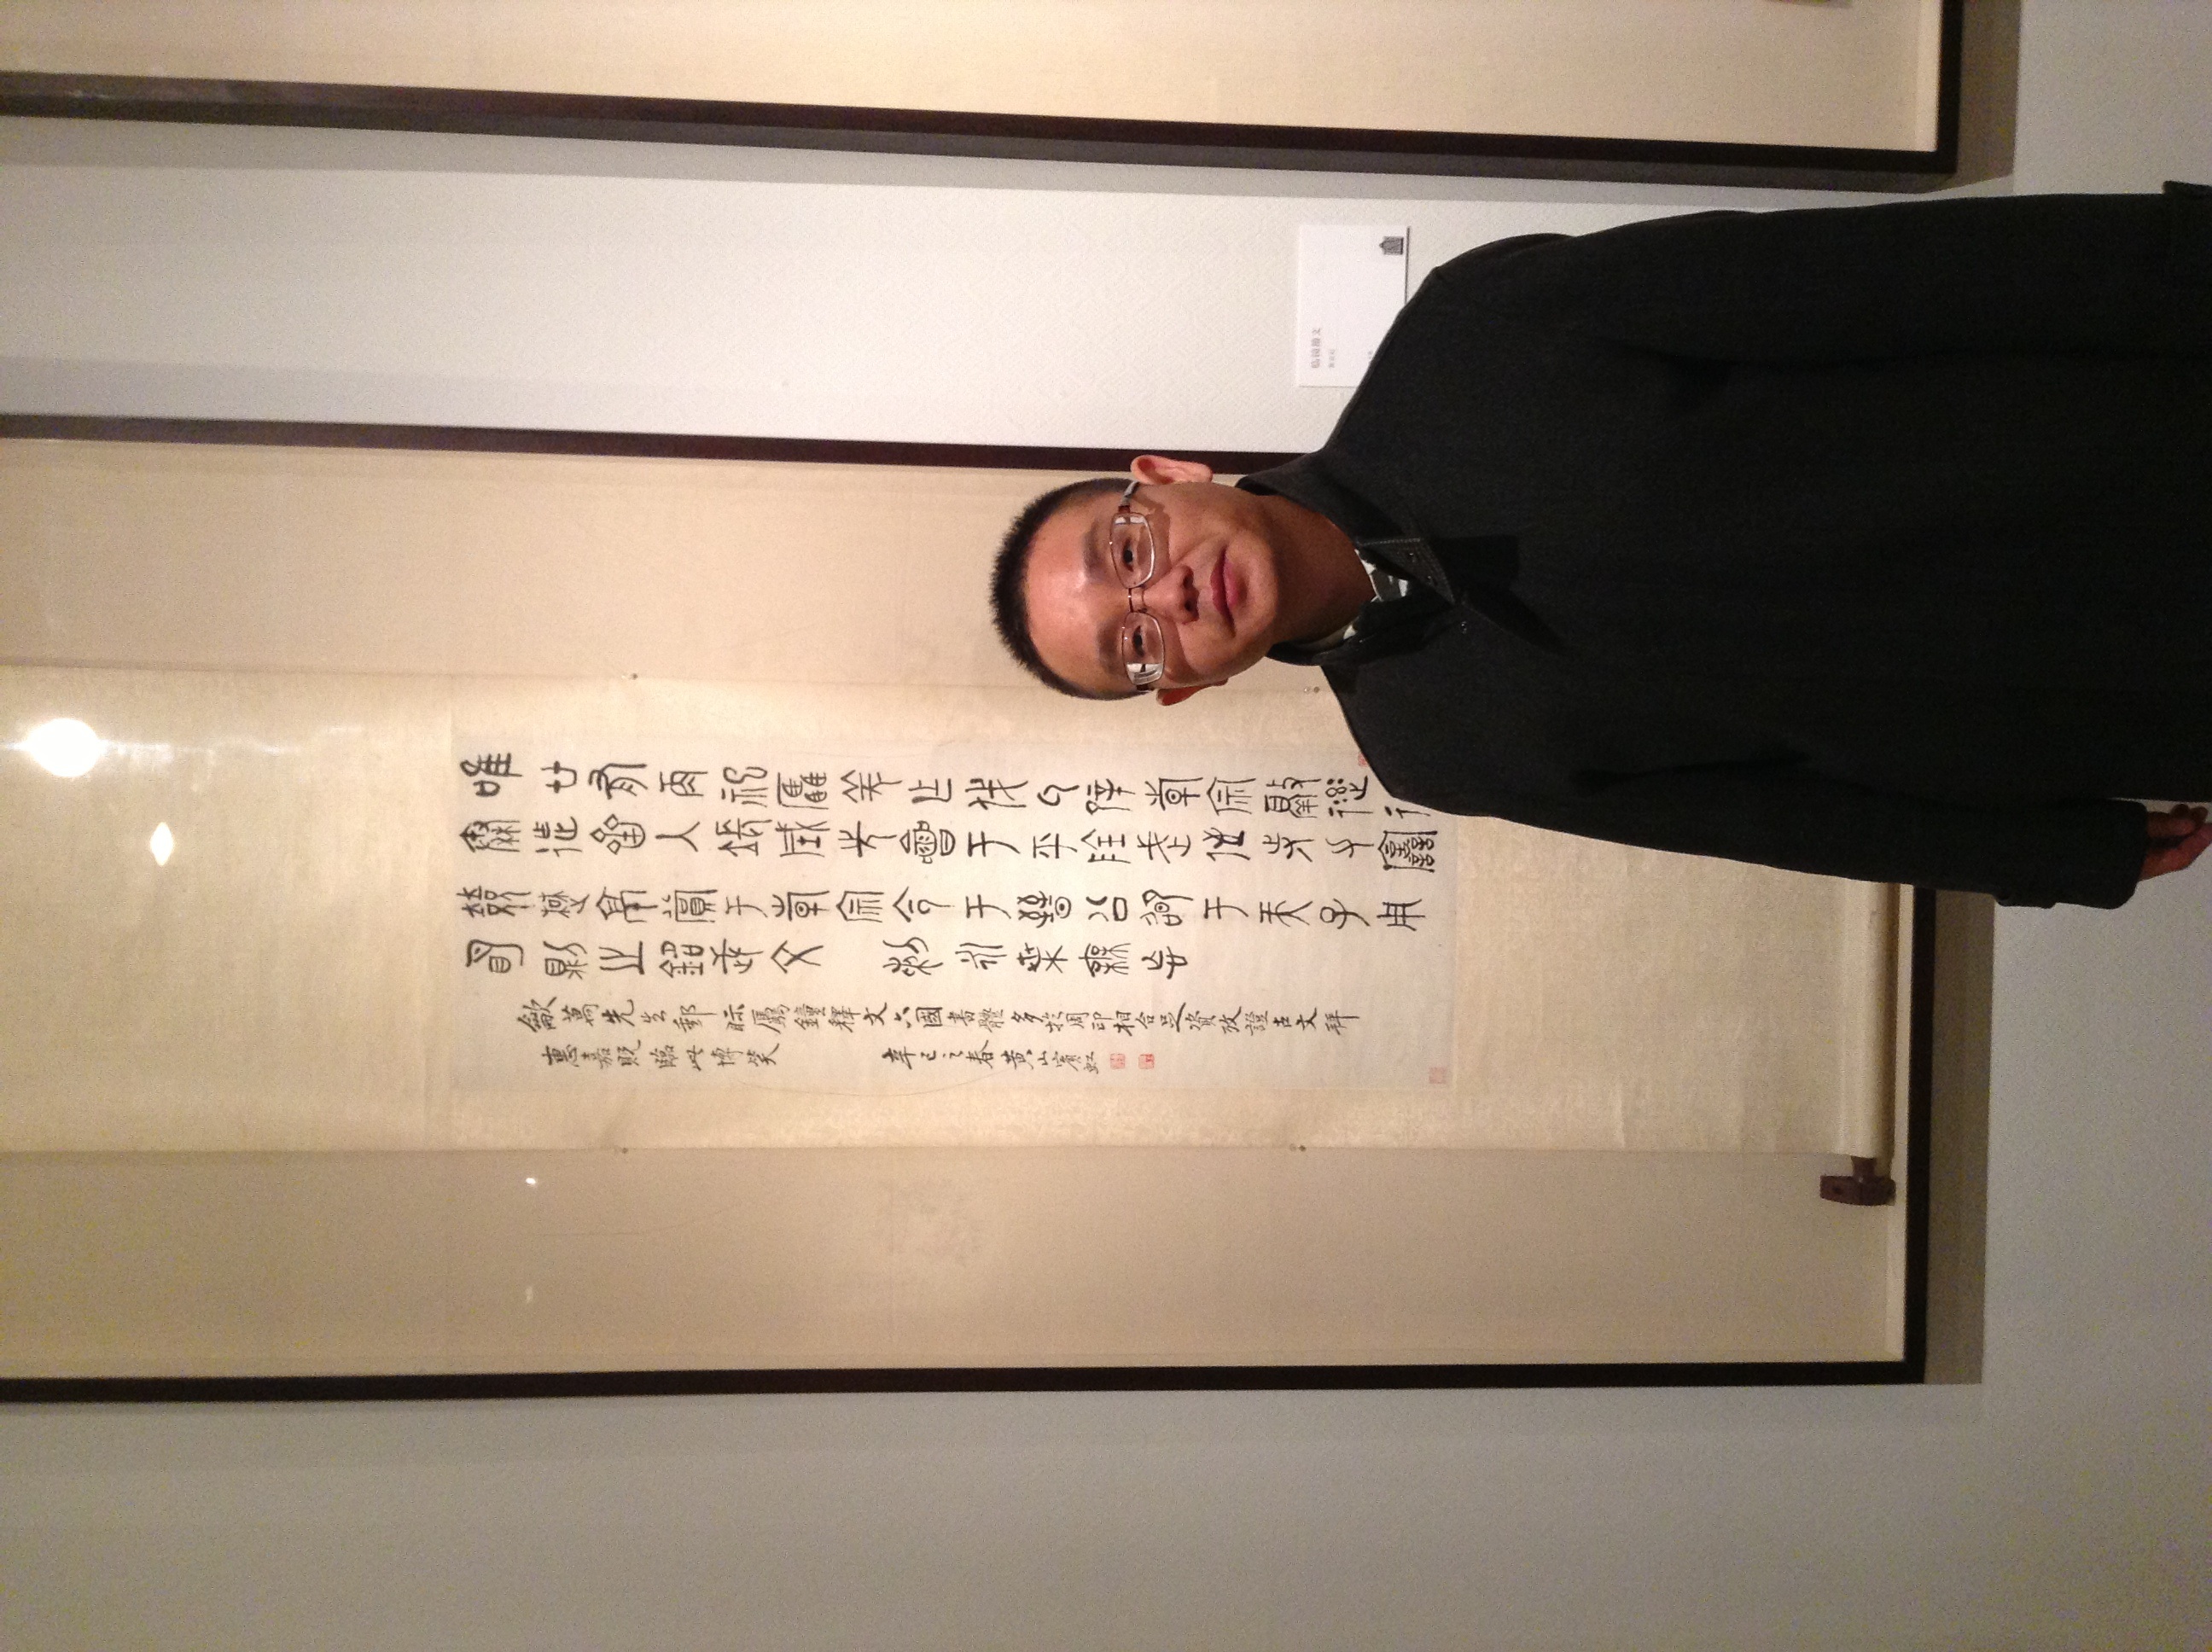 唯廿有再祀驫羌乍伐氒辟倝宗
秦迮齊入長城先會于平陰武侄寺力
楚京賞于倝宗令于晉公卲于天子用
明則之銘武文 剌永枼毋忘
歙萬先生郵眎驫鐘釋文六國書體多於周印相合足資攷證古文拜
惠嘉貺臨此博笑 辛巳之春黃山賓虹